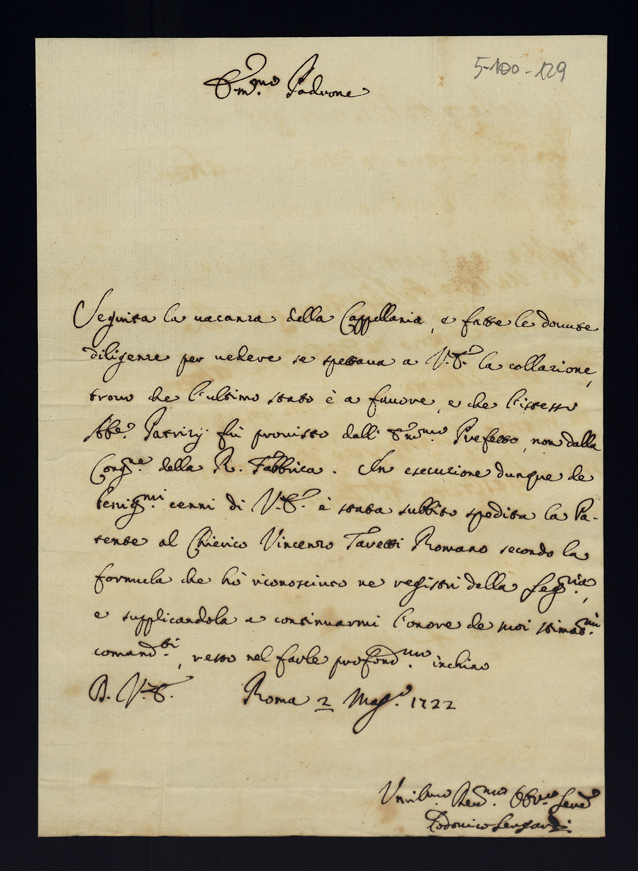 5-100-129
Em.mo Padrone
Seguita la uacanza della Cappellania, e fatte le douute
diligenze per uedere se spettaua a V.E. la collazione,
trouo che l'ultimo stato è a fauore, e che l'istesso
Abb.e Patrizij fù prouisto dall' Em.mo Prefetto, non dalla
Cong.ne della R. Fabbrica. In esecuzione dunque de
benig.mi cenni di V.E. è stata subbito spedita la Pa-
tente al Chierico Vincenzo Tauetti Romano secondo la
formula che hò riconosciuto ne registri della Seg.ria,
e supplicandola a continuarmi l'onore de suoi stimat.mi
comand.ti, resto nel farle profond.mo inchino
D. V.E. Roma 2 Mag.o 1722
Deu.mo Obb.mo Seru.e
Lodouico Sergardi